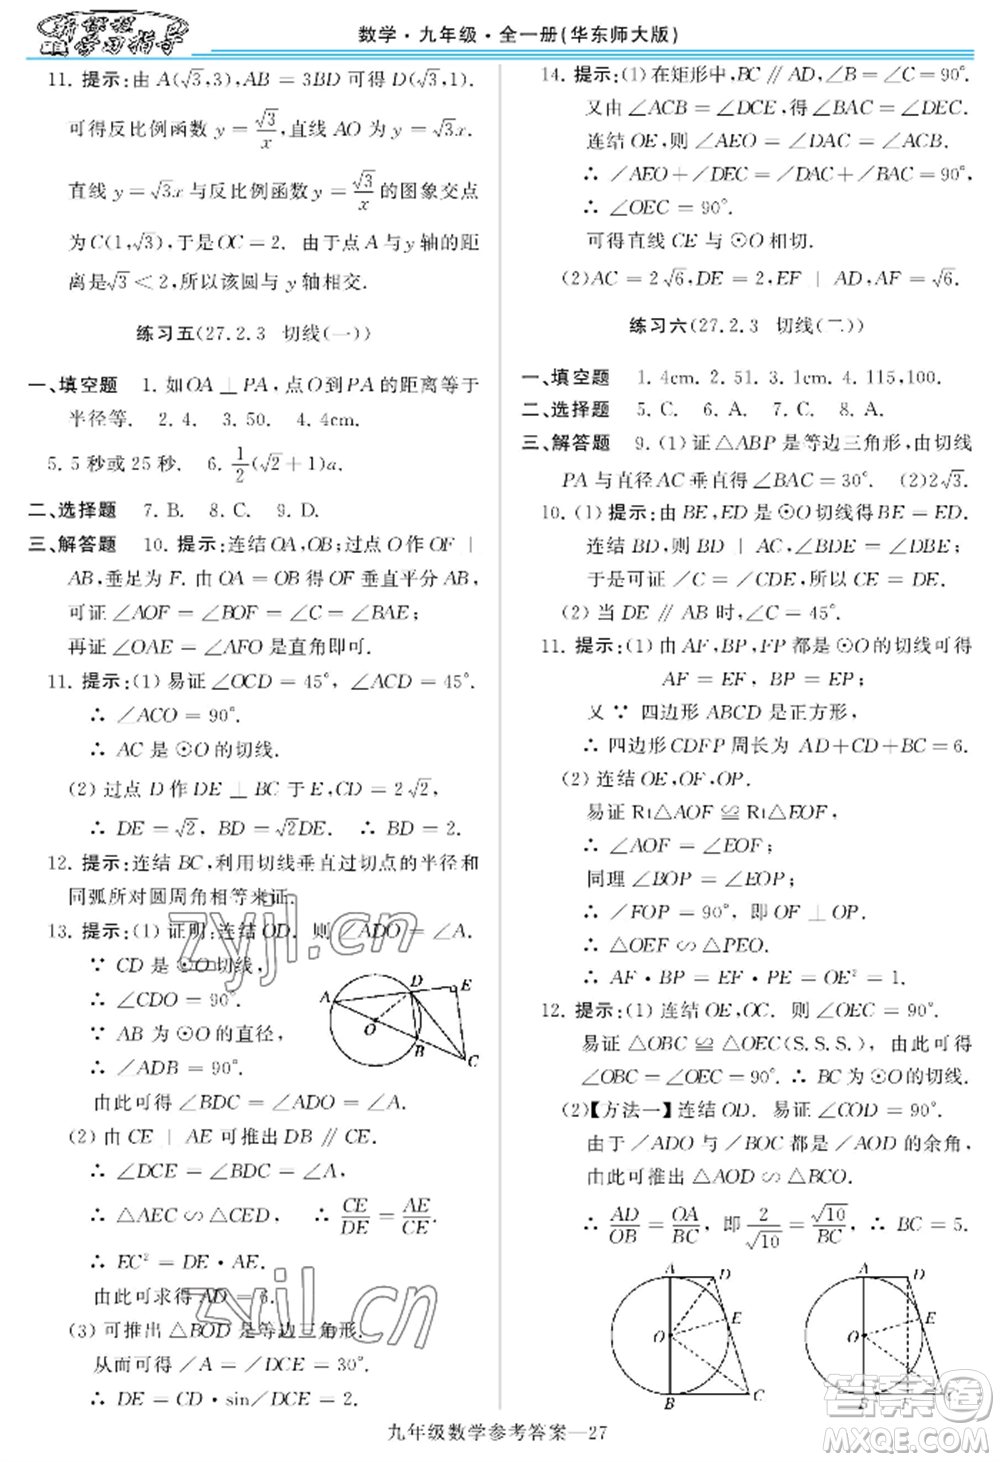 新课程
学习指导
数学·九年级·全一册(华东师大版)
11. 提示:由 A(√3,3),AB = 3BD 可得 D(√3,1).
可得反比例函数 y = √3/x,直线 AO 为 y = √3x.
直线 y = √3x 与反比例函数 y = √3/x 的图象交点
为 C(1,√3),于是 OC = 2. 由于点 A 与 y 轴的距
离是√3 < 2,所以该圆与 y 轴相交.
练习五(27.2.3 切线(一))
一、填空题 1. 如 OA ⊥ PA,点 O 到 PA 的距离等于
半径等. 2. 4. 3. 50. 4. 4cm.
5. 5 秒或 25 秒. 6. 1/2(√2+1)a.
二、选择题 7. B. 8. C. 9. D.
三、解答题 10. 提示:连结 OA,OB;过点 O 作 OF ⊥
AB,垂足为 F. 由 OA = OB 得 OF 垂直平分 AB,
可证 ∠AOF = ∠BOF = ∠C = ∠BAE;
再证 ∠OAE = ∠AFO 是直角即可.
11. 提示:(1) 易证 ∠OCD = 45°, ∠ACD = 45°.
∴ ∠ACO = 90°.
∴ AC 是 ⊙O 的切线.
(2) 过点 D 作 DE ⊥ BC 于 E,CD = 2√2,
∴ DE = √2, BD = √2DE. ∴ BD = 2.
12. 提示:连结 BC,利用切线垂直过切点的半径和
同弧所对圆周角相等来证.
13. 提示:(1) 证明:连结 OD. 则 ∠ADO = ∠A.
∵ CD 是 ⊙O 切线,
∴ ∠CDO = 90°.
∵ AB 为 ⊙O 的直径,
∴ ∠ADB = 90°.
由此可得 ∠BDC = ∠ADO = ∠A.
A D E O B C
(2) 由 CE ⊥ AE 可推出 DB ∥ CE.
∴ ∠DCE = ∠BDC = ∠A.
∴ △AEC ∽ △CED. ∴ CE/DE = AE/CE.
∴ EC² = DE · AE.
由此可求得 AD = 6.
(3) 可推出 △BOD 是等边三角形.
从而可得 ∠A = ∠DCE = 30°.
∴ DE = CD · sin∠DCE = 2.
14. 提示:(1) 在矩形中,BC ∥ AD,∠B = ∠C = 90°.
又由 ∠ACB = ∠DCE,得 ∠BAC = ∠DEC.
连结 OE,则 ∠AEO = ∠OAE = ∠ACB.
∴ ∠AEO + ∠DEC = ∠DAC + ∠BAC = 90°.
∴ ∠OEC = 90°.
可得直线 CE 与 ⊙O 相切.
(2)AC = 2√6,DE = 2,EF ⊥ AD,AF = √6.
练习六(27.2.3 切线(二))
一、填空题 1. 4cm. 2. 51. 3. 1cm. 4. 115,100.
二、选择题 5. C. 6. A. 7. C. 8. A.
三、解答题 9. (1) 证 △ABP 是等边三角形,由切线
PA 与直径 AC 垂直得 ∠BAC = 30°. (2)2√3.
10. (1) 提示:由 BE,ED 是 ⊙O 切线得 BE = ED.
连结 BD,则 BD ⊥ AC,∠BDE = ∠DBE;
于是可证 ∠C = ∠CDE,所以 CE = DE.
(2) 当 DE ∥ AB 时,∠C = 45°.
11. 提示:(1) 由 AF,BP,FP 都是 ⊙O 的切线可得
AF = EF, BP = EP;
又 ∵ 四边形 ABCD 是正方形,
∴ 四边形 CDFP 周长为 AD+CD+BC = 6.
(2) 连结 OE,OF,OP.
易证 Rt△AOF ≌ Rt△EOF,
∴ ∠AOF = ∠EOF;
同理 ∠BOP = ∠EOP;
∴ ∠FOP = 90°, 即 OF ⊥ OP.
∴ △OEF ∽ △PEO.
∴ AF · BP = EF · PE = OE² = 1.
12. 提示:(1) 连结 OE,OC. 则 ∠OEC = 90°.
易证 △OBC ≌ △OEC(S.S.S.), 由此可得
∠OBC = ∠OEC = 90°. ∴ BC 为 ⊙O 的切线.
(2)【方法一】连结 OD. 易证 ∠COD = 90°,
由于 ∠ADO 与 ∠BOC 都是 ∠AOD 的余角,
由此可推出 △AOD ∽ △BCO.
∴ AD/OB = OA/BC, 即 2/√10 = √10/BC, ∴ BC = 5.
A D E O B C
A D E O B F C
zyjl.cn
zyjl.cn
作业精灵
九年级数学参考答案—27